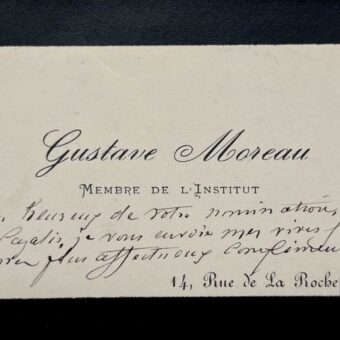 Gustave Moreau
Membre de l'Institut
heureux de votre nomination,
Cazalis, je vous envoie mes vives
plus affectueux compliments
14, Rue de La Roche